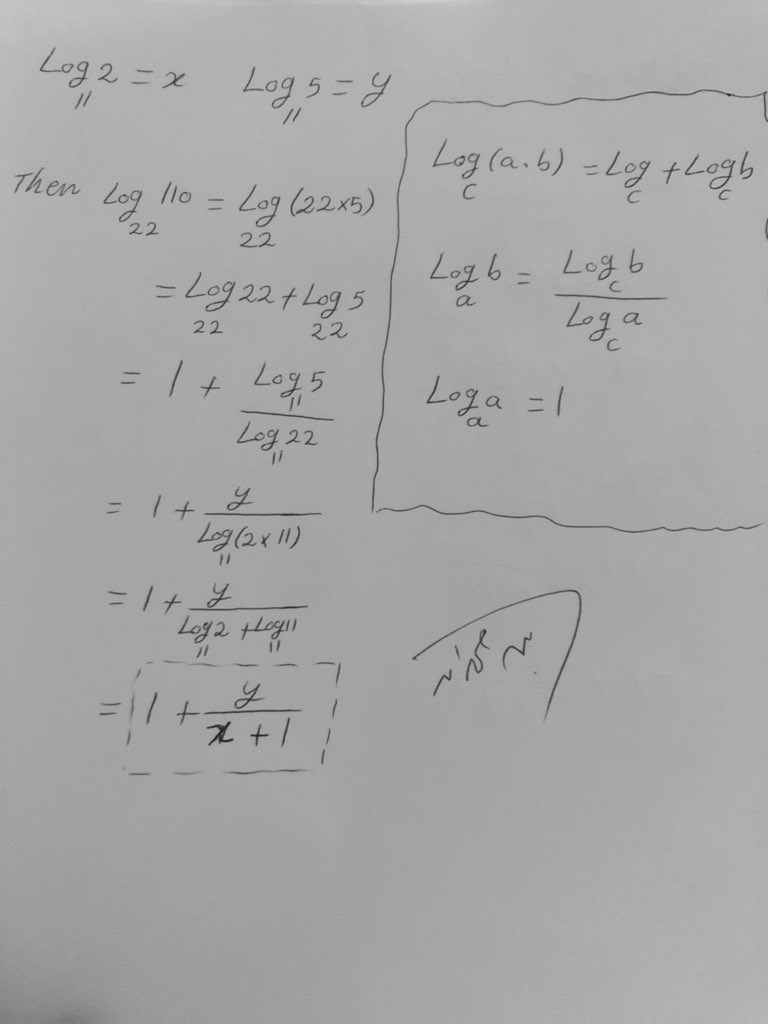 Log₁₁ 2 = x    Log₁₁ 5 = y
Then Log₂₂ 110 = Log₂₂ (22×5)
= Log₂₂ 22 + Log₂₂ 5
= 1 + Log₁₁ 5 / Log₁₁ 22
= 1 + y / Log₁₁ (2×11)
= 1 + y / (Log₁₁ 2 + Log₁₁ 11)
= 1 + y / (x + 1)
Log_c (a.b) = Log_c + Log_c b
Log_a b = Log_c b / Log_c a
Log_a a = 1